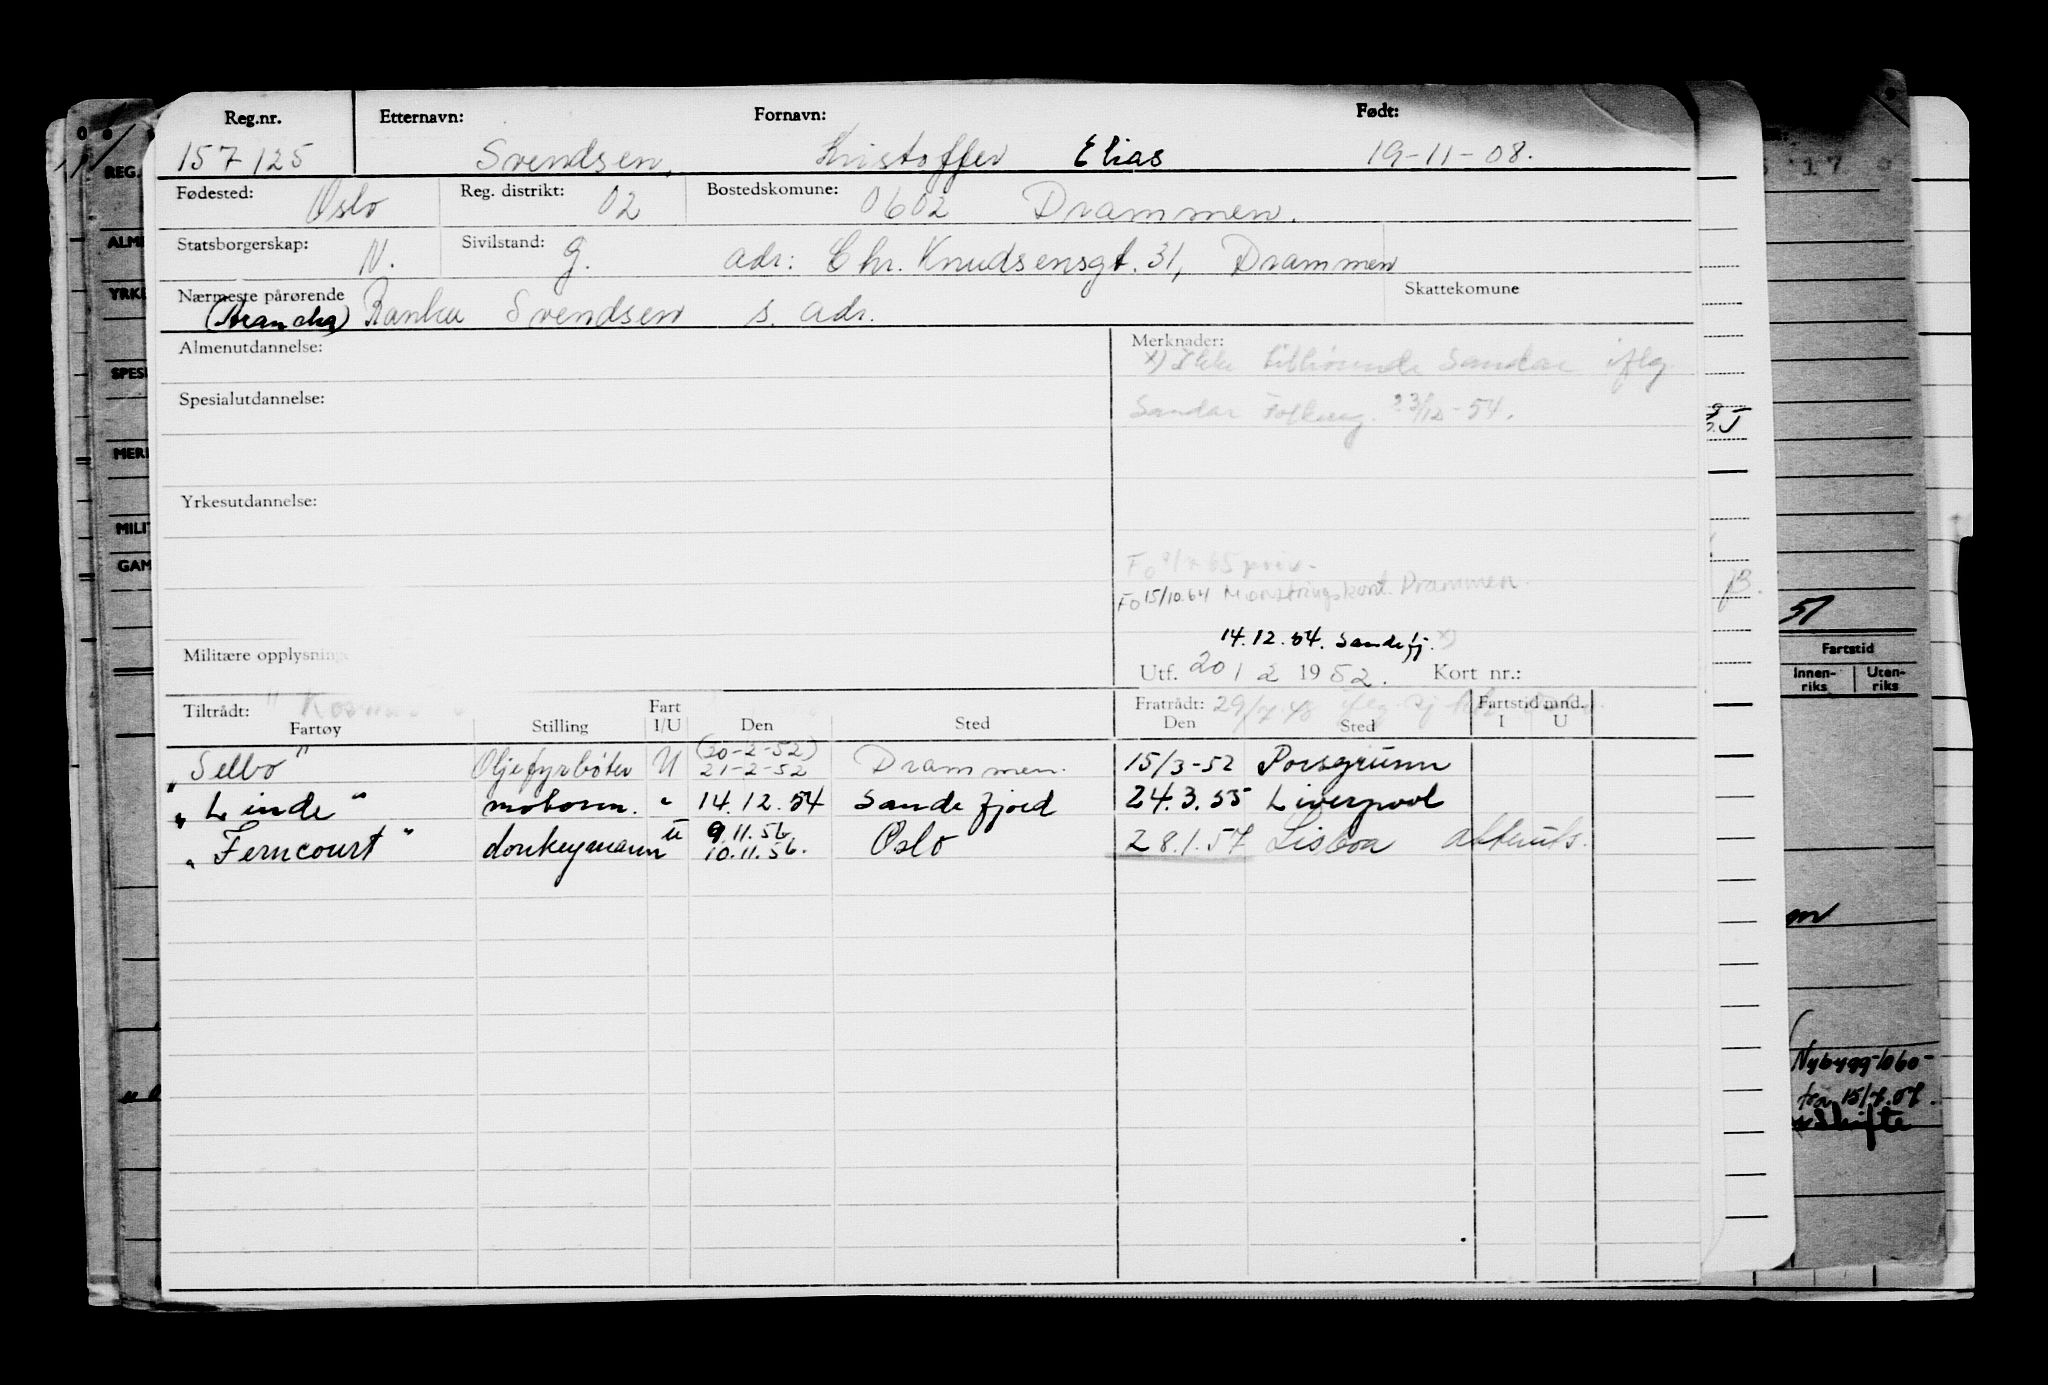 Reg.nr. Etternavn: Fornavn: Født:
157125 Svendsen, Kristoffer Elias 19-11-08.
Fødested: Oslo Reg. distrikt: 02 Bostedskomune: 0602 Drammen.
Statsborgerskap: N. Sivilstand: g. adr: Chr. Knudsensgt. 31, Drammen
Nærmeste pårørende (Brancha) Ranka Svendsen s. adr. Skattekomune
Almenutdannelse: Merknader:
x) Ikke tilhørende Sandar iflg
Spesialutdannelse: Sandar Folkereg. 23/12-54.
Yrkesutdannelse:
Fo 65 priv.
Fo 15/10.64 Mønstringskort. Drammen.
14.12.54. Sandefj. x)
Militære opplysning Utf. 20/2 1952. Kort nr.:
Tiltrådt: Fart Fratrådt: 29/ Fartstid mnd.
Fartøy Stilling I/U Den Sted Den Sted I U
"Selbo" Oljefyrbøter U (20-2-52) 21-2-52 Drammen. 15/3-52 Porsgrunn
"Linde" motorm. " 14.12.54 Sandefjord 24.3.55 Liverpool
"Ferncourt" donkeymann U 9.11.56. 10.11.56. Oslo 28.1.57 Lisboa
REG.
ALME
YRKE
SPESI
MERK
MILIT
GAM
17
51
Fartstid
Innen-riks Uten-riks
Nybygg-1060-
fra 15/7.57.
Skifte